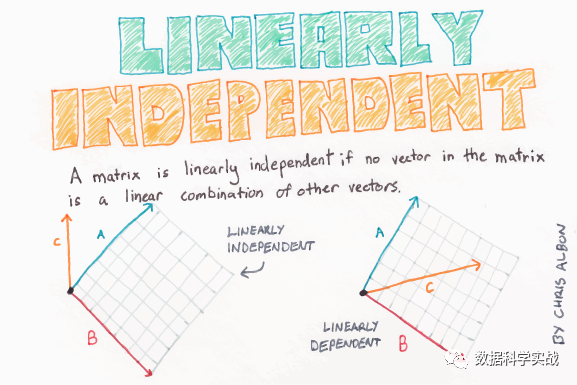 LINEARLY
INDEPENDENT
A matrix is linearly independent if no vector in the matrix
is a linear combination of other vectors.
C
A
B
LINEARLY
INDEPENDENT
A
C
B
LINEARLY
DEPENDENT
BY CHRIS ALBON
数据科学实战